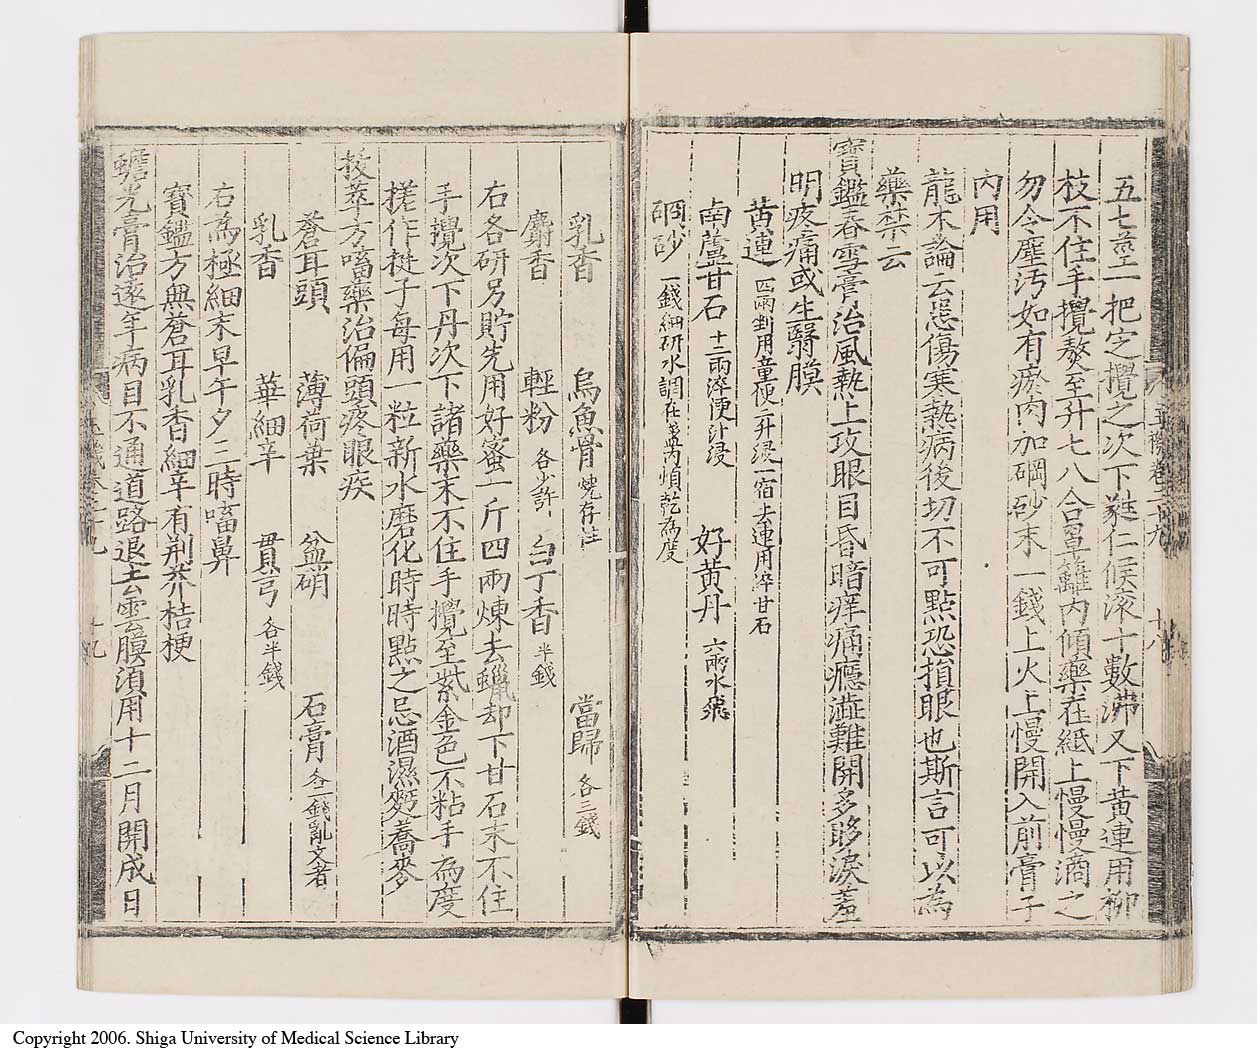 五七莖一把定攪之次下蕤仁候滚十數沸又下黄連用柳
枝不住手攪熬至升七八合罩籬内傾藥在紙上慢慢滴之
勿令塵汚如有瘀肉加硇砂末一錢上火上慢開入前膏子
内用
龍木論云惡傷寒熱病後切不可點恐損眼也斯言可以為
藥禁云
寶鑑春雪膏治風熱上攻眼目昏暗痒痛癮澁難開多眵淚羞
明疼痛或生翳膜
黄連 四兩剉用童便二升浸一宿去連用淬甘石
南蘆甘石 十二兩淬便汁浸 好黄丹 六兩水飛
硇砂 一錢細研水調在盞内煩乾為度
乳香 烏魚骨 燒存性 當歸 各三錢
麝香 輕粉 各少許 白丁香 半錢
右各研另貯先用好蜜一斤四兩煉去蠟却下甘石末不住
手攪次下丹次下諸藥末不住手攪至紫金色不粘手為度
搓作挺子每用一粒新水磨化時時點之忌酒濕麪蕎麥
拔萃方㗜藥治偏頭疼眼疾
蒼耳頭 薄荷葉 盆硝 石膏 各一錢亂文者
乳香 華細辛 貫芎 各半錢
右為極細末早午夕三時㗜鼻
寶鑑方無蒼耳乳香細辛有荆芥桔梗
蟾光膏治遠年病目不通道路退去雲膜須用十二月開成日